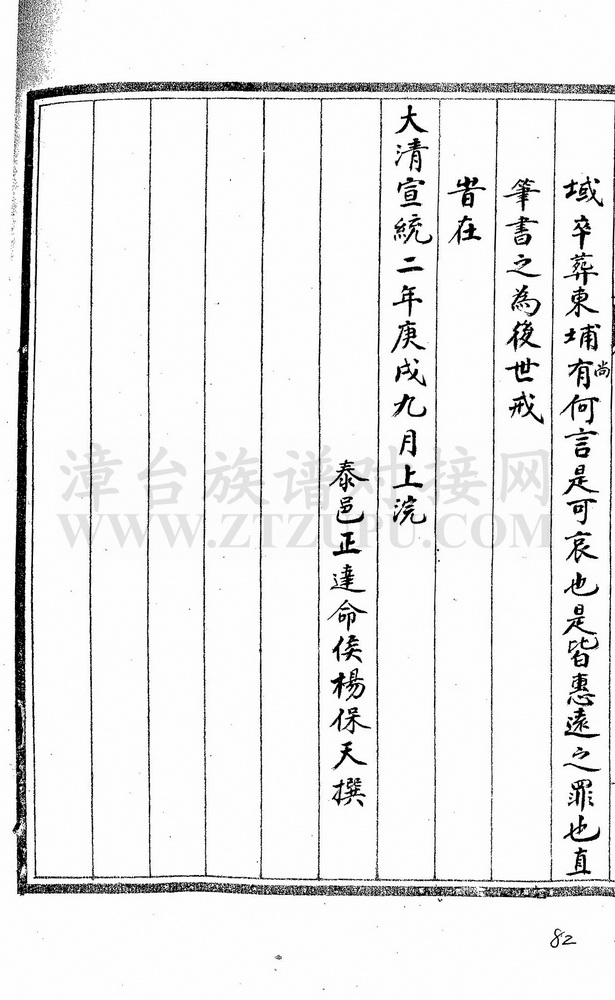 域卒葬東埔有尚何言是可哀也是皆惠遠之罪也直
筆書之為後世戒
旹在
大清宣統二年庚戌九月上浣
泰邑正達命侯楊保天撰
漳台族谱对接网
WWW.ZTZUPU.COM
82